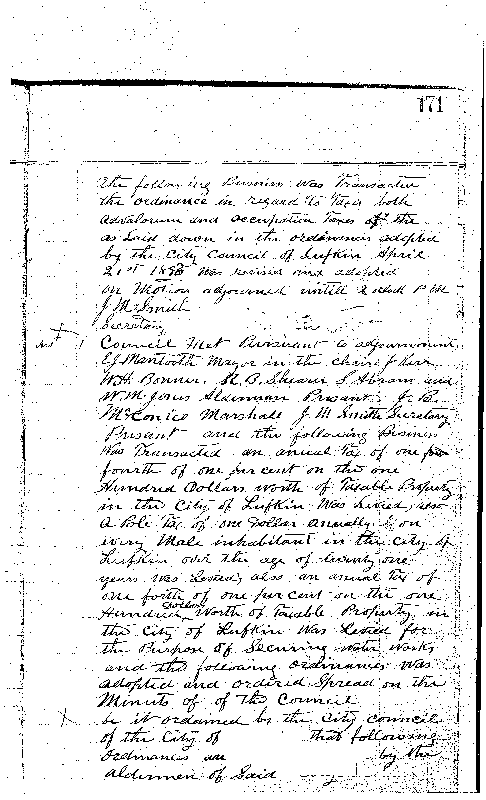 171
the following Business was Transacted
the ordinance in regard to Taxes both
advalorum and occupation Taxes of the
as Laid down in the ordinances adopted
by the City Council of Lufkin April
21st 1898 was revised and adopted
on Motion adjourned untill 2 oclock P M
J M Smith
Secretary
Council Met Pursuant to adjournment
E J Mantooth Mayor in the chair J Kerr
W. H. Bonner. B. Shearer S. Abram and
W. M. Jones Alderman Present J. B.
McConico Marshall J. M Smith Secretary
Present and the following Business
Was Transacted an annual Tax of one
fourth of one per cent on the one
Hundred Dollars worth of Taxable Property
in the City of Lufkin Was Levied, also
A Pole Tax of one Dollar annually on
every Male inhabitant in the City of
Lufkin over the age of twenty one
years was Levied, also an annual Tax of
one forth of one per cent on the one
Hundred Dollars Worth of Taxable Property in
the City of Lufkin Was Levied for
the Purpose of Securing water works
and the following ordinances was
adopted and ordered Spread on the
Minute of of the Council
be it ordained by the City council
of the City of that following
ordinances are by the
aldermen of Said